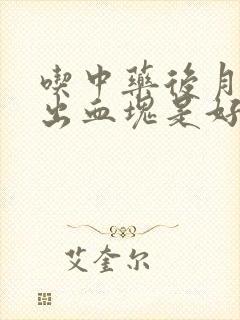 喫中藥後月
出血塊是好
艾奎尔